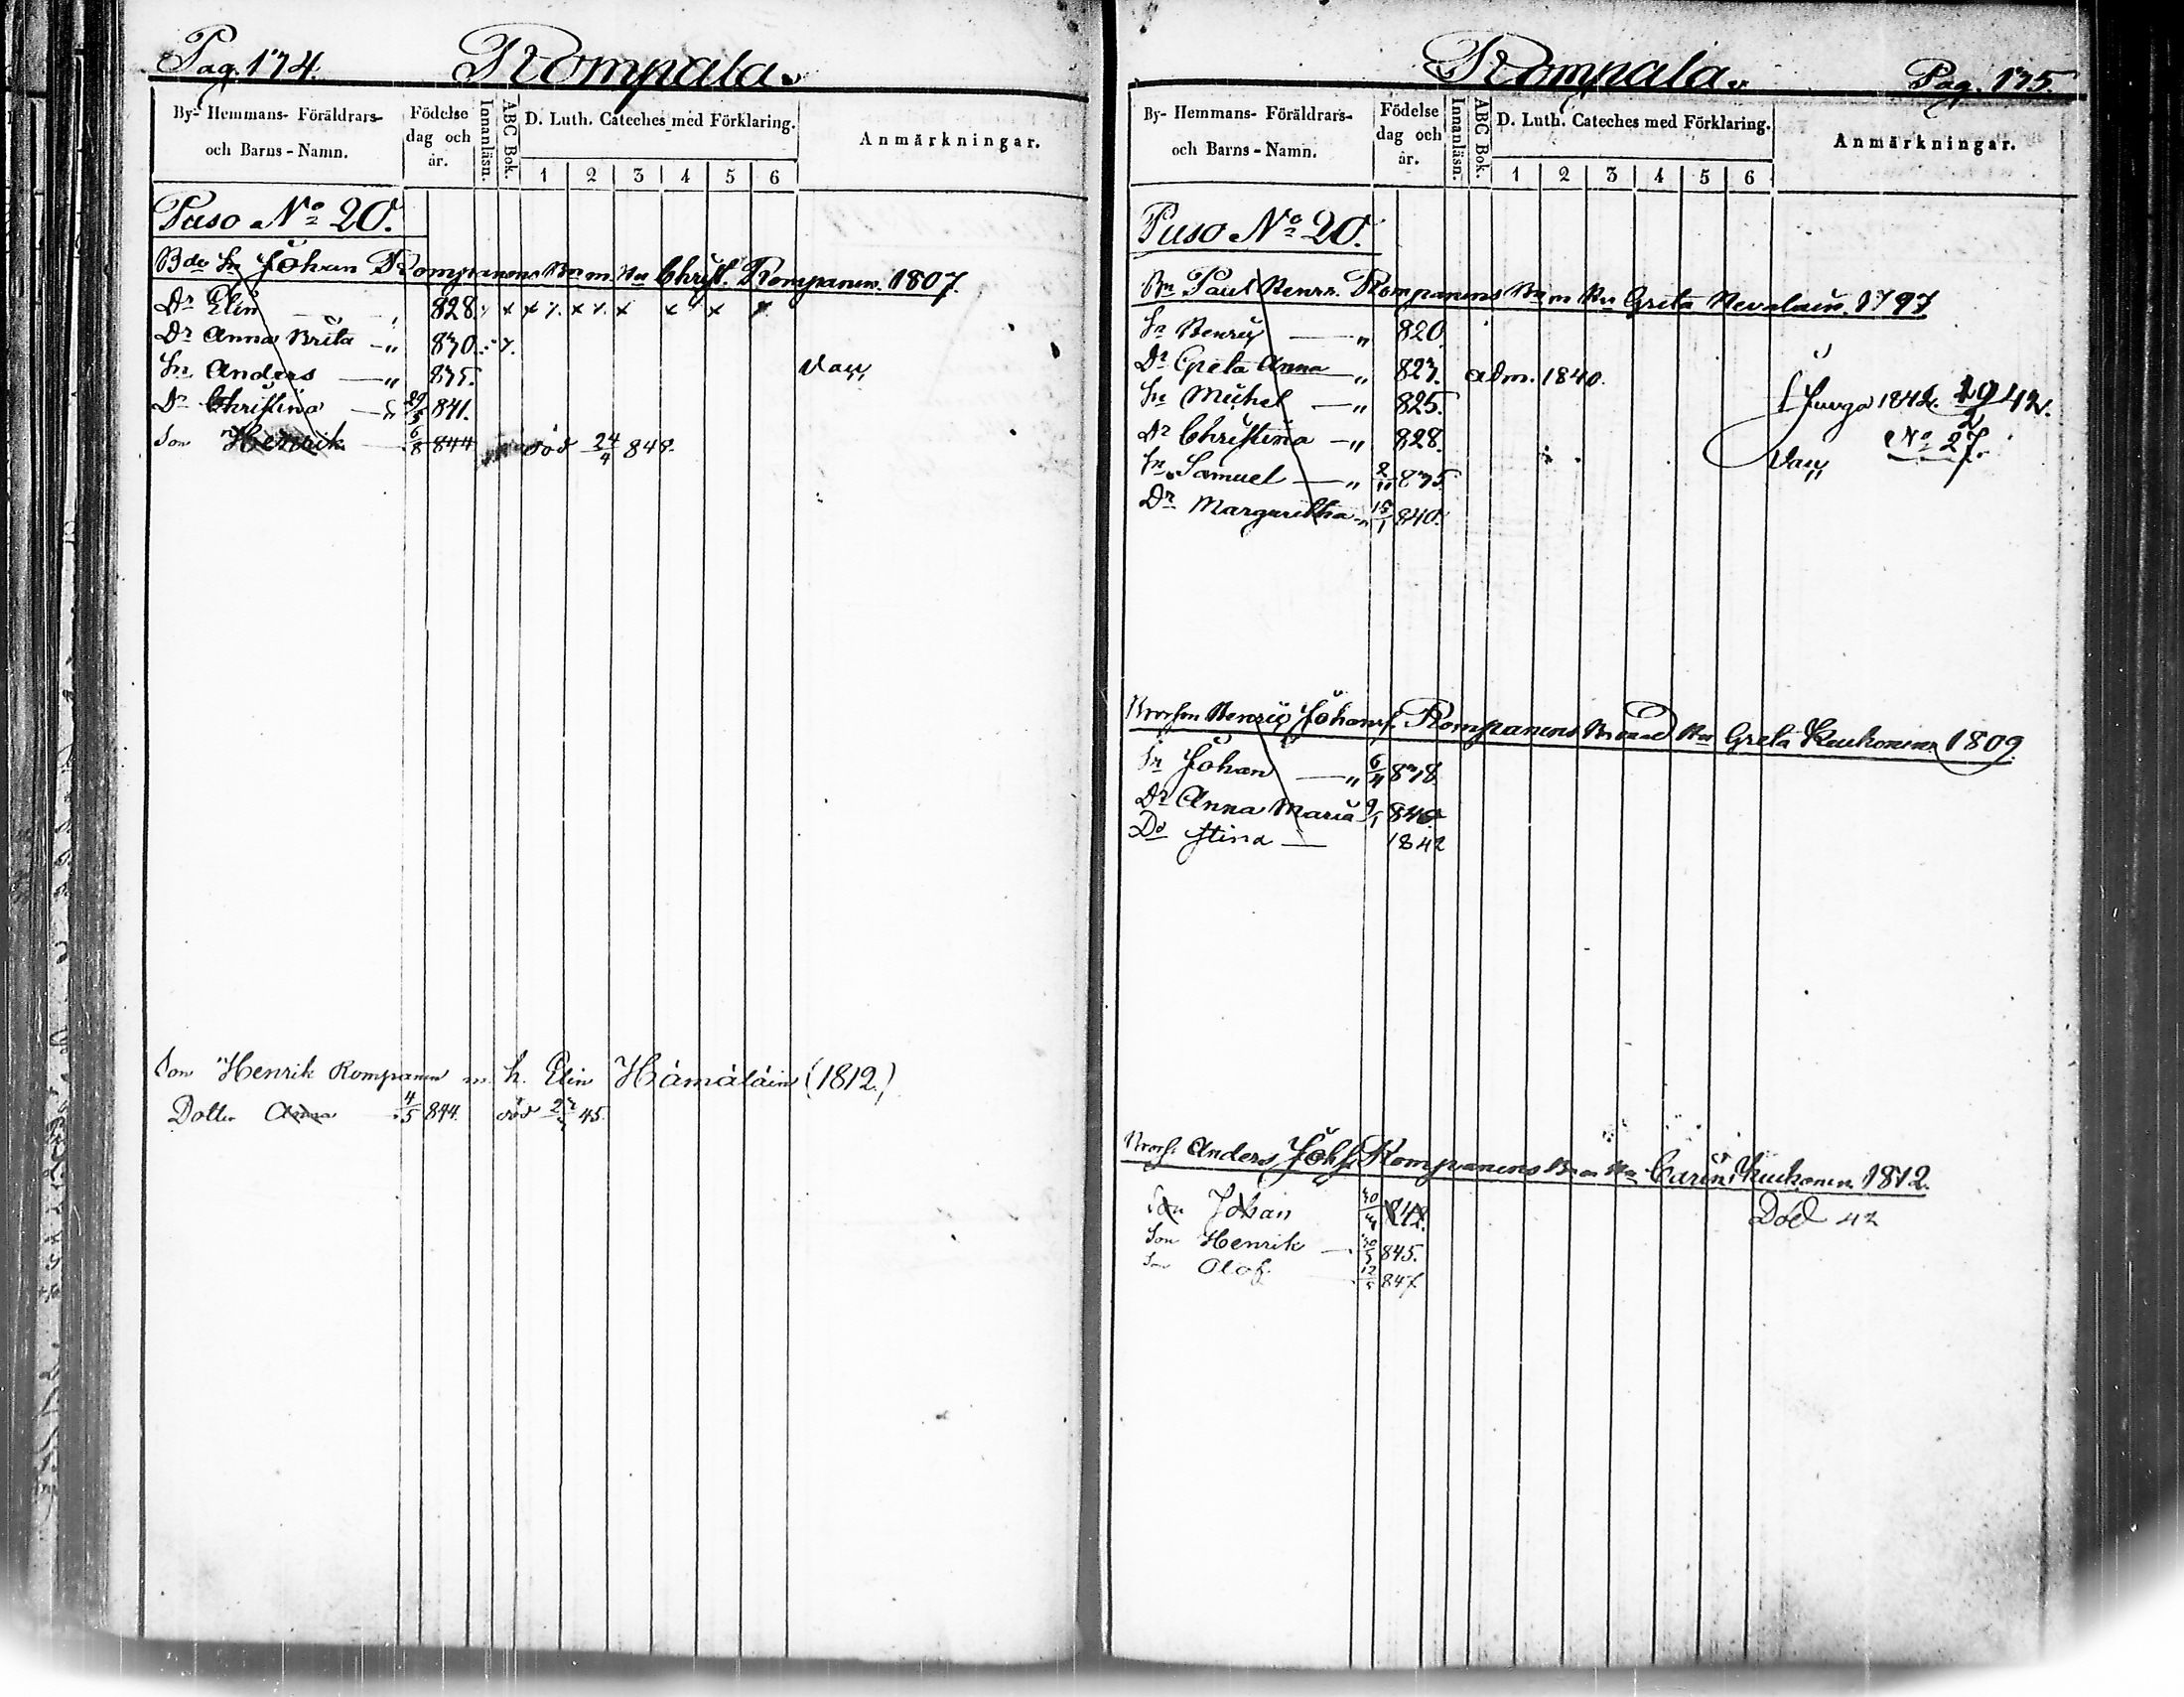 Pag. 174. Rompala.
By- Hemmans- Föräldrars- och Barns-Namn. Födelse dag och år. Innanläsn. ABC Bok. D. Luth. Cateches med Förklaring. Anmärkningar.
1 2 3 4 5 6
Puso No 20.
Johan Rompanens Christ. Rompanen. 1807.
Dr Elin 828
Dr Anna Brita — " 830.
Sn Anders — " 835.
Dr Christina — " 29/5 841.
Son Henrik 6/8 844 död 24/4 848.
Son Henrik Rompanen m. h. Elin Hämäläin (1812.)
Dotter Anna 4/5 844. död 45.
Pag. 175. Rompala.
By- Hemmans- Föräldrars- och Barns-Namn. Födelse dag och år. Innanläsn. ABC Bok. D. Luth. Cateches med Förklaring. Anmärkningar.
1 2 3 4 5 6
Puso No 20.
Paul Henrr. Rompanens Greta Nevalain. 1797
Sn Henric — " 820.
Dr Greta Anna — " 823. adm. 1840.
Sn Michel — " 825. 1842. 42.
Dr Christina — " 828. No 27.
Sn Samuel — " 835
Dr Margaretha — " 15/1 840.
Henric Johans. Rompanens Greta Kuikonen 1809.
Sn Johan — " 838
Dr Anna Maria 840
Dr Stina — 1842
Anders Johs. Rompanens Carin Kuikonen 1812.
Son Johan Död 42
Son Henrik — 845.
Son Olof 847.